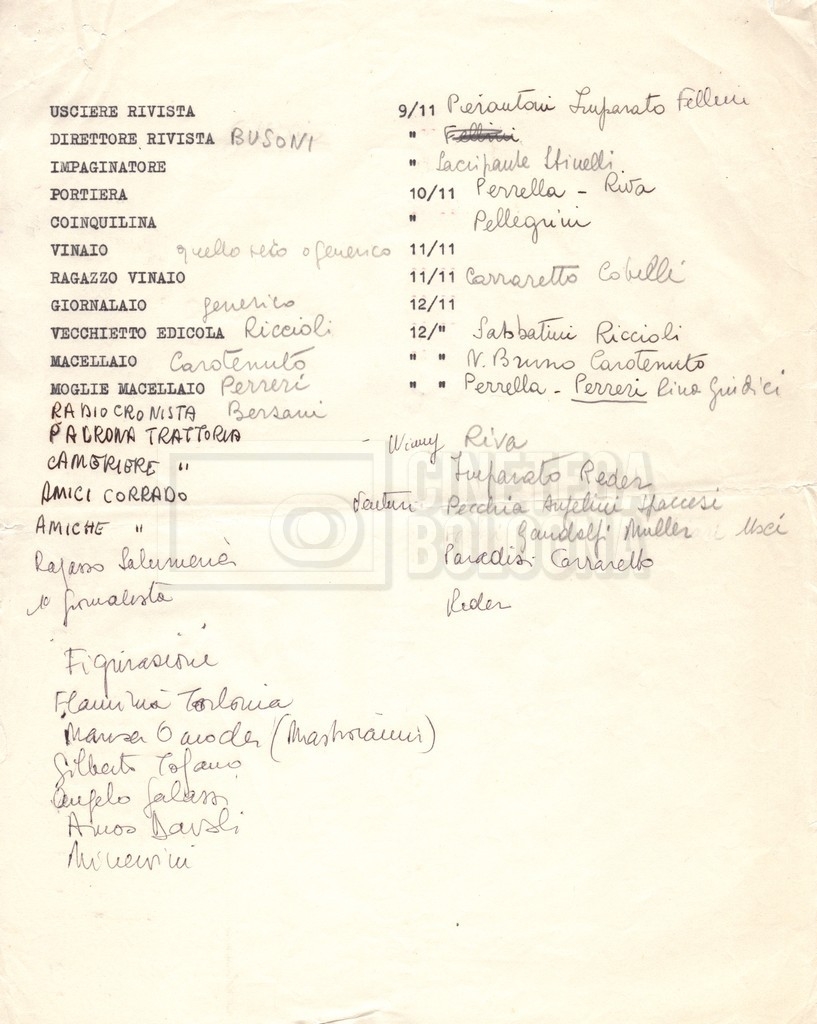 USCIERE RIVISTA 9/11 Pierantoni Imparato Fellini
DIRETTORE RIVISTA BUSONI " Fellini
IMPAGINATORE " Sacripante Stinelli
PORTIERA 10/11 Perrella - Riva
COINQUILINA " Pellegrini
VINAIO quello vero o generico 11/11
RAGAZZO VINAIO 11/11 Carraretto Cobelli
GIORNALAIO generico 12/11
VECCHIETTO EDICOLA Riccioli 12/" Sabbatini Riccioli
MACELLAIO Carotenuto " " N. Bruno Carotenuto
MOGLIE MACELLAIO Perreri " " Perrella - Perreri Rina Giudici
RADIOCRONISTA Bersani
PADRONA TRATTORIA - Winny Riva
CAMERIERE " Imparato Reder
AMICI CORRADO Venturi Pecchia Angelini Spaccesi
AMICHE " Gandolfi Muller
Ragazzo Salumeria Paradisi Carraretto
1o giornalista Reder
Figurazione
Flaminia Torlonia
Marisa (Mastroianni)
Gilberto Tofano
Angelo Galassi
Amos Davoli
Minervini
CINETECA
BOLOGNA